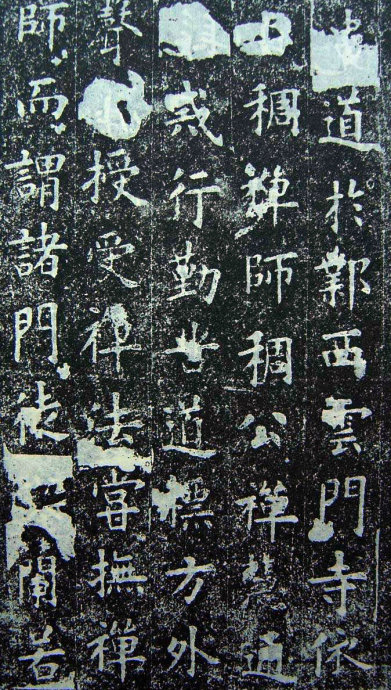 道於鄴西雲門寺依
止稠禪師稠公禪慧通
戒行勤苦道標方外
聲授受禪法嘗撫禪
師而謂諸門徒闌若